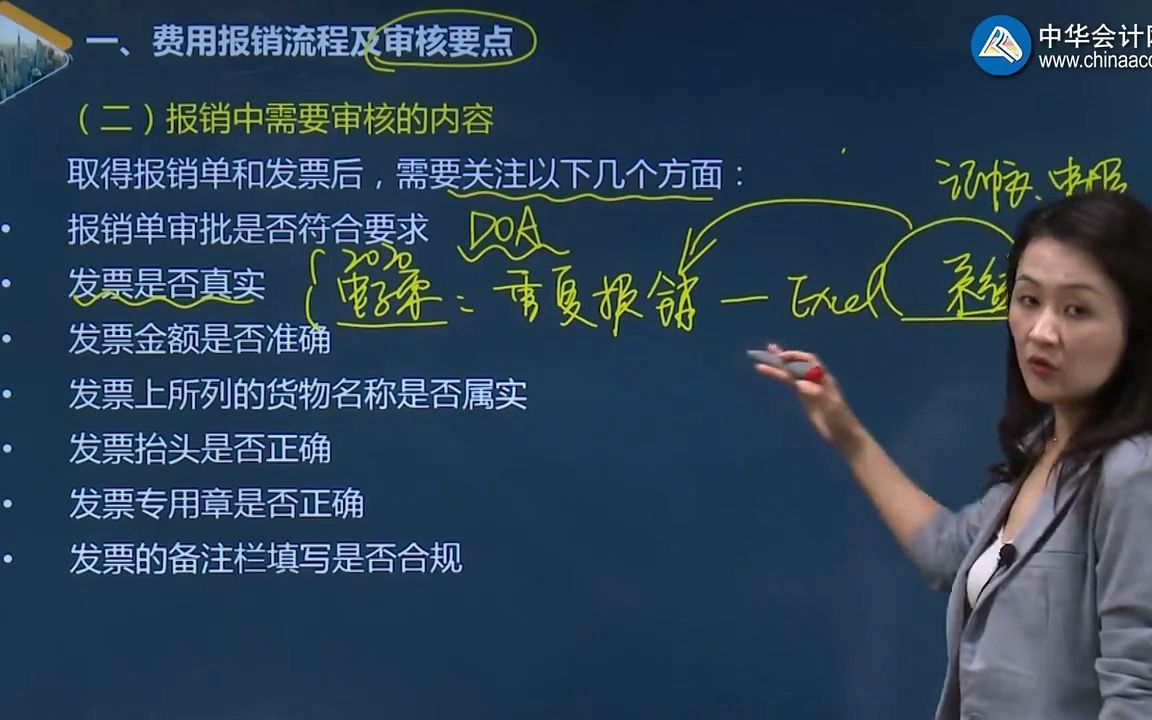 一、费用报销流程及审核要点
中华会计网
www.chinaacc
（二）报销中需要审核的内容
取得报销单和发票后，需要关注以下几个方面：
记帐、申报
• 报销单审批是否符合要求 DOA
2020
• 发票是否真实 电子票：重复报销 — Excel 系统
• 发票金额是否准确
• 发票上所列的货物名称是否属实
• 发票抬头是否正确
• 发票专用章是否正确
• 发票的备注栏填写是否合规